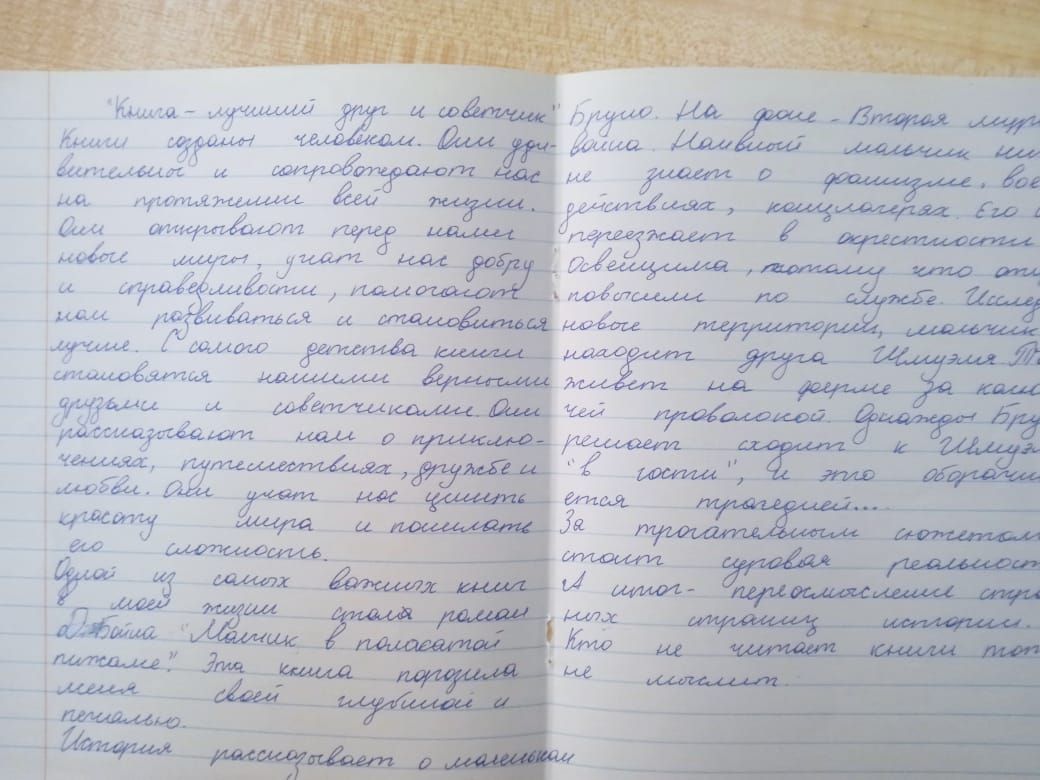 "Книга - лучший друг и советчик"
Книги созданы человеком. Они уди-
вительны и сопровождают нас
на протяжении всей жизни.
Они открывают перед нами
новые миры, учат нас добру
и справедливости, помогают
нам развиваться и становиться
лучше. С самого детства книги
становятся нашими верными
друзьями и советчиками. Они
рассказывают нам о приклю-
чениях, путешествиях, дружбе и
любви. Они учат нас ценить
красоту мира и понимать
его сложность.
Одной из самых важных книг
в моей жизни стала роман
Д. Бойна "Мальчик в полосатой
пижаме". Эта книга поразила
меня своей глубиной и
печалью.
История рассказывает о маленьком
Бруно. На фоне - Вторая миро
война. Наивный мальчик ни
не знает о фашизме, вое
действиях, концлагерях. Его
переезжает в окрестности
Освенцима, потому что отц
повысили по службе. Исслед
новые территории, мальчик
находит друга Шмуэля. То
живет на ферме за колю
чей проволокой. Однажды Бру
решает сходит к Шмуэл
"в гости", и это оборачив
ется трагедией....
За трогательным сюжетом
стоит суровая реальност
А итог - переосмысление стра
ных страниц истории.
Кто не читает книги тот
не мыслит.